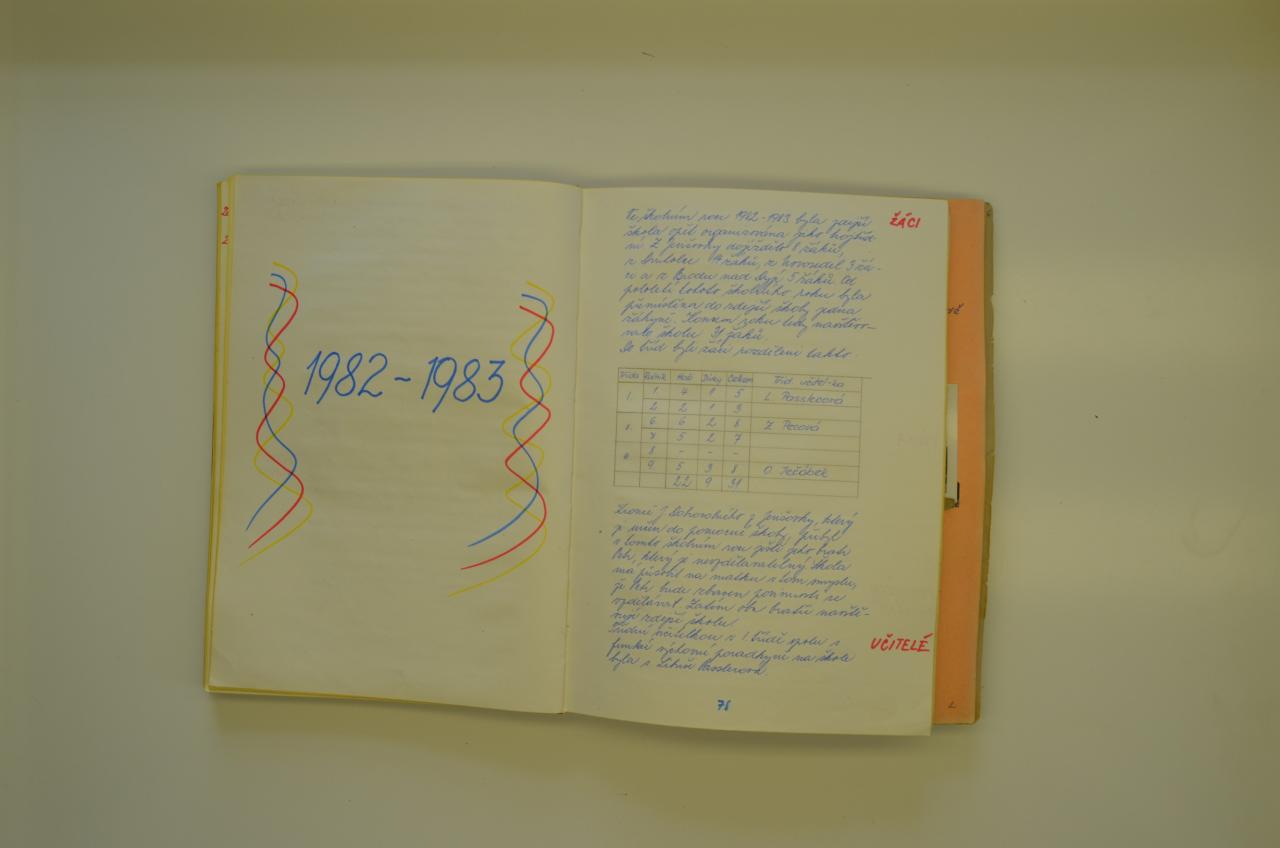 1982 - 1983
Ve školním roce 1982-1983 byla zdejší
škola opět organizována jako trojtříd-
ní. Z dojíždělo 8 žáků,
z 14 žáků, z Novosedel 3 žá-
ci a z Brodu nad Dyjí 5 žáků. Od
pololetí tohoto školního roku byla
přemístěna do zdejší školy jedna
žákyně. Koncem roku tedy navštěvo-
valo školu 31 žáků.
Do tříd byli žáci rozděleni takto:
ŽÁCI
Třída Ročník Hoši Dívky Celkem Tříd. učitel-ka
I. 1 4 1 5 L. Passlerová
2 2 1 3
6. 6 2 8 Z. Pecová
7 5 2 7
8 - - -
9. 5 3 8 O. Ježábek
22 9 31
z který
je určen do pomocné školy, přibyl
v tomto školním roce ještě jeho bratr
Petr, který je nevzdělavatelný. Škola
má působit na matku v tom smyslu,
že Petr bude zbaven povinnosti se
vzdělávat. Zatím oba bratři navště-
vují zdejší školu.
Třídní učitelkou v I. třídě spolu s
funkcí výchovné poradkyně na škole
byla s. Libuše Passlerová.
UČITELÉ
78